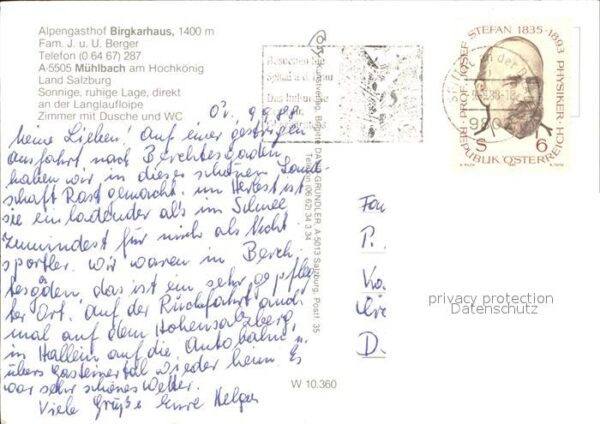 Alpengasthof Birgkarhaus, 1400 m
Fam. J. u. U. Berger
Telefon (0 64 67) 287
A-5505 Mühlbach am Hochkönig
Land Salzburg
Sonnige, ruhige Lage, direkt
an der Langlaufloipe
Zimmer mit Dusche und WC
9 9 88
Meine Lieben! Auf einer gestrigen
Ausfahrt nach Berchtesgaden
haben wir in dieser schönen Land
schaft Rast gemacht. im Herbst ist
sie einladender als im Schnee
Zumindest für mich als Nicht
sportler. Wir waren in Berch
tesgaden, das ist ein sehr gepfleg
ter Ort. Auf der Rückfahrt
mal auf dem Hohensalzberg,
in Hallein auf die Autobahn,
übers Gasteinertal wieder heim Es
war sehr schönes Wetter.
Viele Grüße Eure Helga
W 10.360
Kunstverlag, Brigitte GRÜNDLER, A-5013 Salzburg, Postf. 35
Telefon (06 62) 34 3 34
PROF. JOSEF STEFAN 1835-1893 PHYSIKER
S 6
REPUBLIK ÖSTERREICH
Spittal an der
9802
Fam
P.
D.
privacy protection
Datenschutz